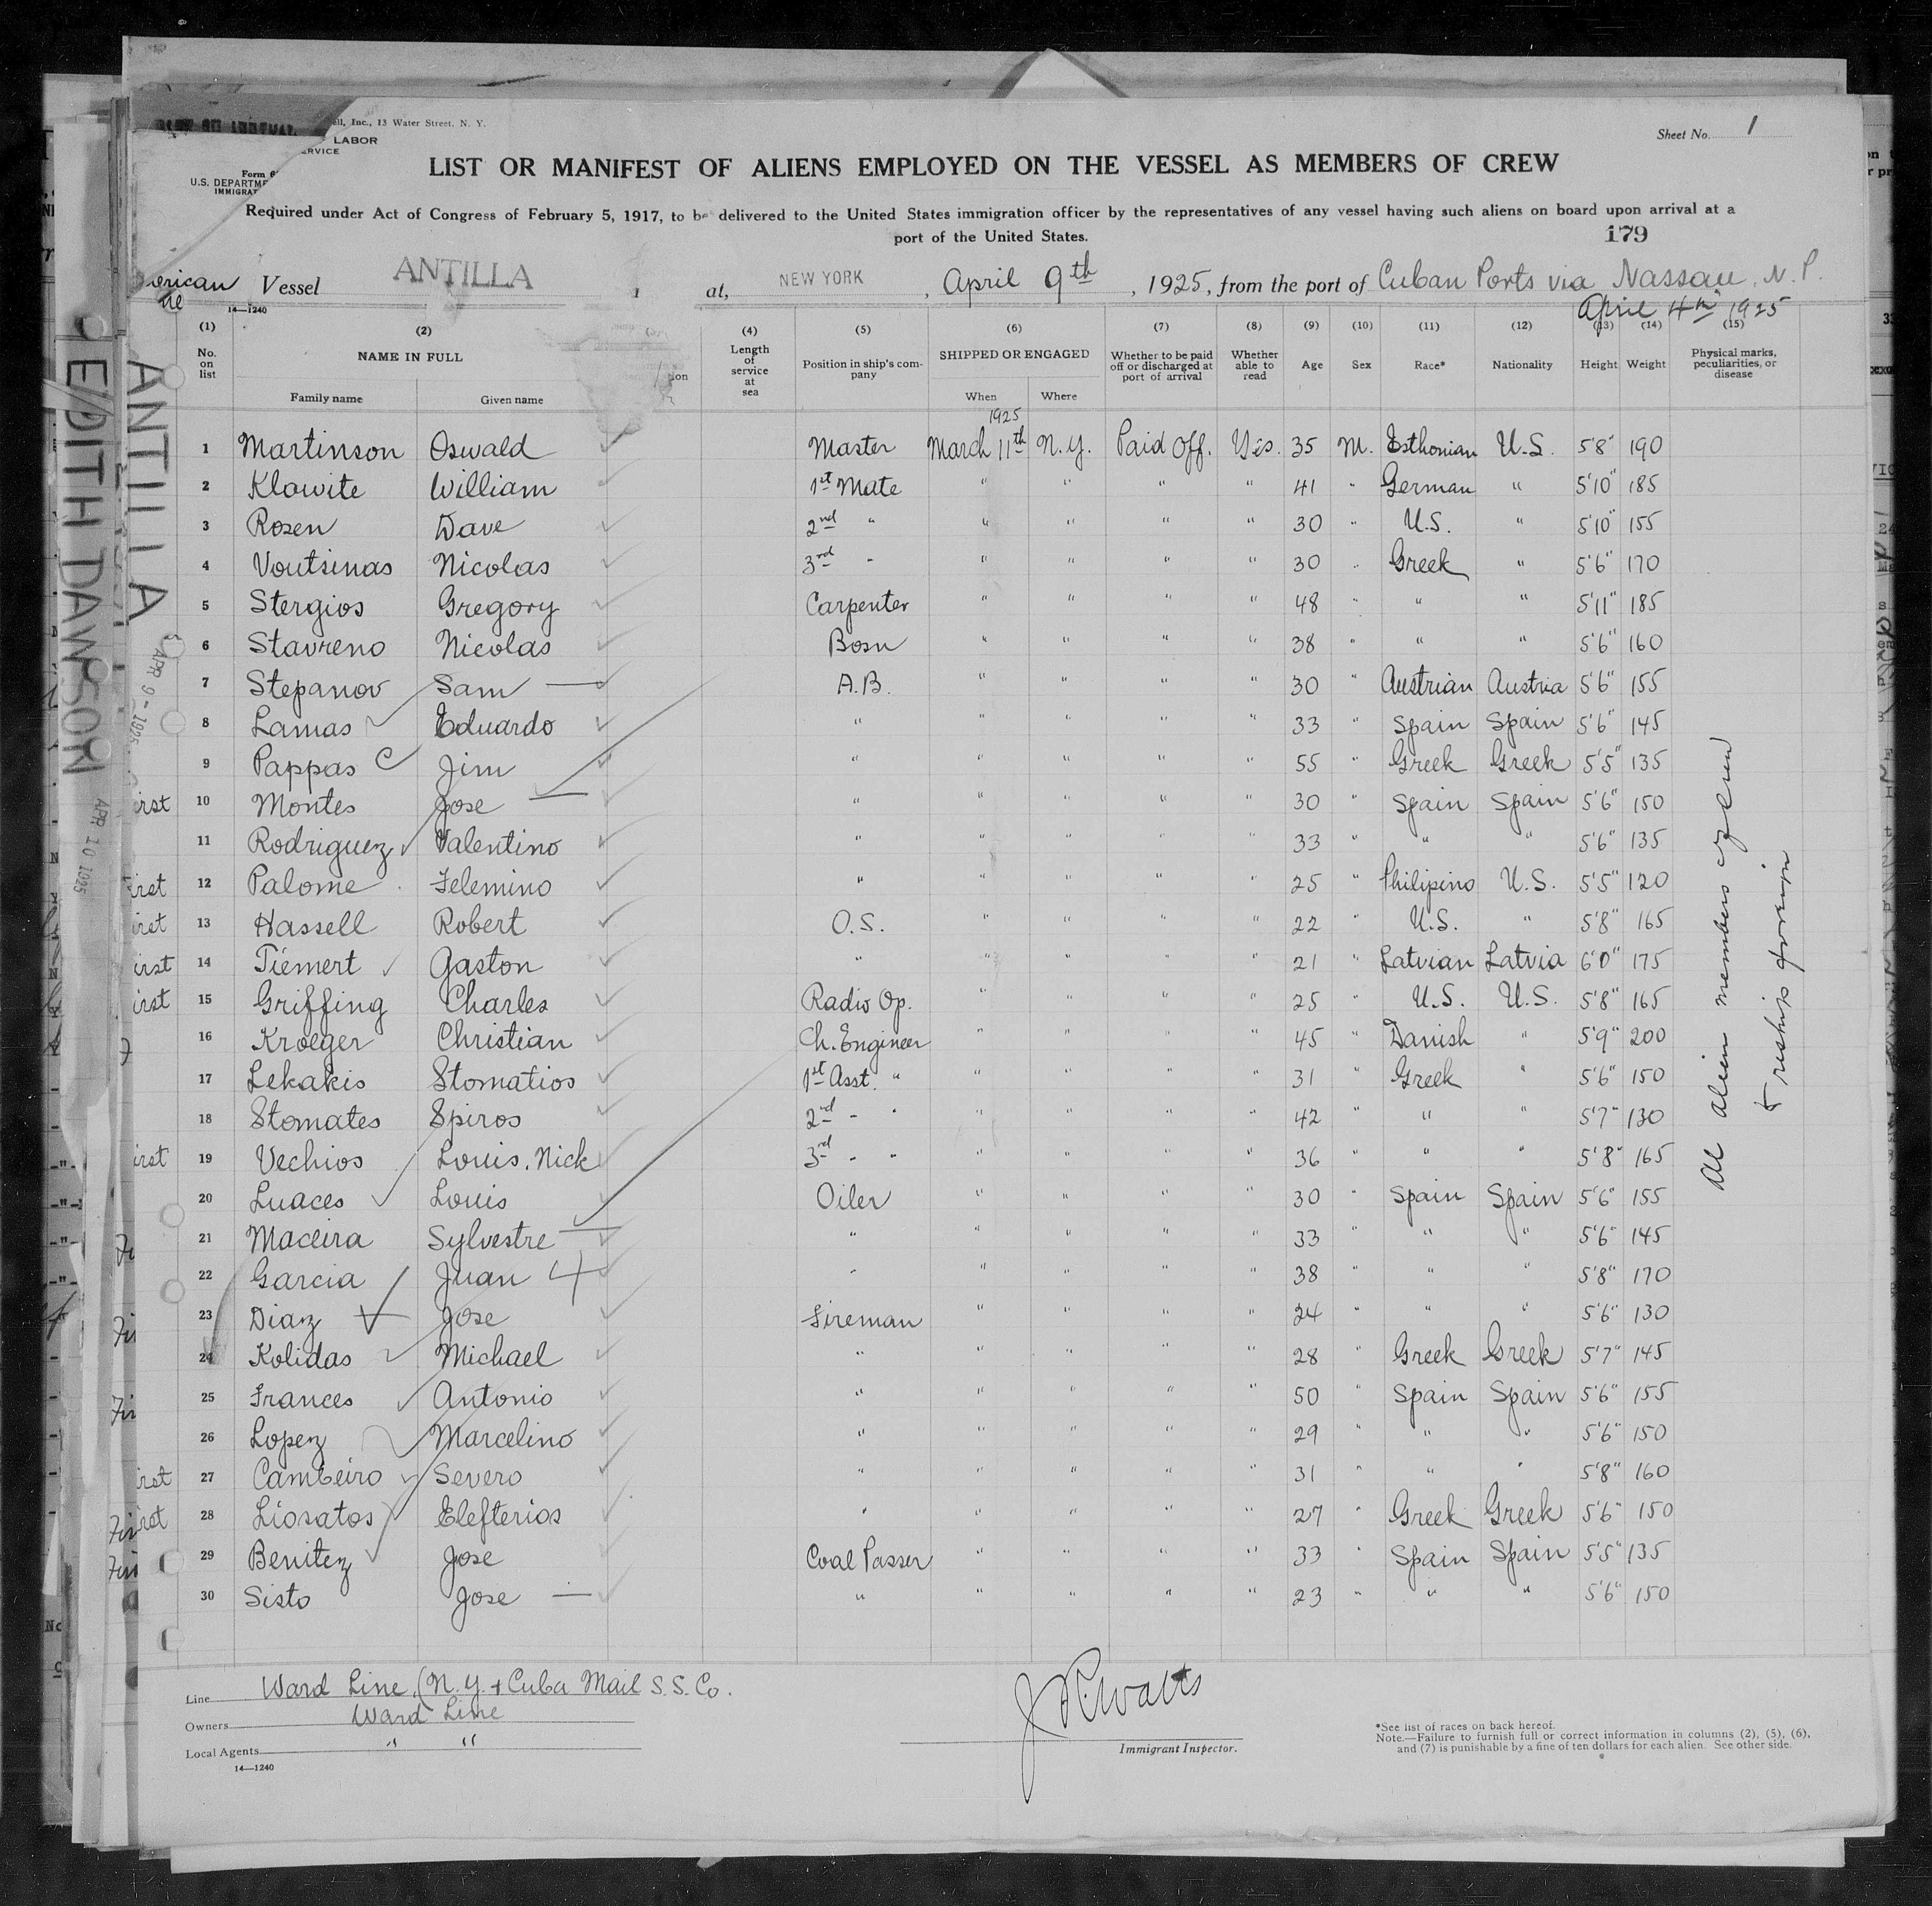 all, Inc., 13 Water Street, N. Y.
Sheet No. 1
LABOR
Form
U.S. DEPARTME
IMMIGRAT
ERVICE
LIST OR MANIFEST OF ALIENS EMPLOYED ON THE VESSEL AS MEMBERS OF CREW
Required under Act of Congress of February 5, 1917, to be delivered to the United States immigration officer by the representatives of any vessel having such aliens on board upon arrival at a
port of the United States.
179
erican Vessel ANTILLA at, NEW YORK, April 9th, 1925, from the port of Cuban Ports via Nassau, N. P.
April 4th 1925
14—1240
(1) (2) (4) (5) (6) (7) (8) (9) (10) (11) (12) (13) (14) (15)
No. on list NAME IN FULL Length of service at sea Position in ship's company SHIPPED OR ENGAGED Whether to be paid off or discharged at port of arrival Whether able to read Age Sex Race* Nationality Height Weight Physical marks, peculiarities, or disease
Family name Given name When Where
1925
1 Martinson Oswald Master March 11th N.Y. Paid Off. Yes. 35 M. Esthonian U.S. 5'8" 190
2 Klowite William 1st Mate " " " " 41 " German " 5'10" 185
3 Rosen Dave 2nd " " " " " 30 " U.S. " 5'10" 155
4 Voutsinas Nicolas 3rd " " " " " 30 " Greek " 5'6" 170
5 Stergios Gregory Carpenter " " " " 48 " " " 5'11" 185
6 Stavreno Nicolas Bosn " " " " 38 " " " 5'6" 160
7 Stepanov Sam A.B. " " " " 30 " Austrian Austria 5'6" 155
8 Lamas Eduardo " " " " " 33 " Spain Spain 5'6" 145
9 Pappas Jim " " " " " 55 " Greek Greek 5'5" 135
irst 10 Montes Jose " " " " " 30 " Spain Spain 5'6" 150
11 Rodriguez Valentino " " " " " 33 " " " 5'6" 135
irst 12 Palome Felemino " " " " " 25 " Philipino U.S. 5'5" 120
irst 13 Hassell Robert O.S. " " " " 22 " U.S. " 5'8" 165
irst 14 Tiemert Gaston " " " " " 21 " Latvian Latvia 6'0" 175
irst 15 Griffing Charles Radio Op. " " " " 25 " U.S. U.S. 5'8" 165
16 Kroeger Christian Ch. Engineer " " " " 45 " Danish " 5'9" 200
17 Lekakis Stomatios 1st Asst. " " " " " 31 " Greek " 5'6" 150
18 Stomates Spiros 2nd " " " " " " 42 " " " 5'7" 130
irst 19 Vechios Louis. Nick 3rd " " " " " " 36 " " " 5'8" 165
20 Luaces Louis Oiler " " " " 30 " Spain Spain 5'6" 155
21 Maceira Sylvestre " " " " " 33 " " " 5'6" 145
22 Garcia Juan " " " " " 38 " " " 5'8" 170
23 Diaz Jose Fireman " " " " 24 " " " 5'6" 130
24 Kolidas Michael " " " " " 28 " Greek Greek 5'7" 145
25 Frances Antonio " " " " " 50 " Spain Spain 5'6" 155
26 Lopez Marcelino " " " " " 29 " " " 5'6" 150
irst 27 Cambeiro Severo " " " " " 31 " " " 5'8" 160
28 Liosatos Elefterios " " " " " 27 " Greek Greek 5'6" 150
29 Benitez Jose Coal Passer " " " " 33 " Spain Spain 5'5" 135
30 Sisto Jose " " " " " 23 " " " 5'6" 150
All alien members
Line Ward Line, (N. Y. + Cuba Mail S. S. Co.
Owners Ward Line
Local Agents " "
14—1240
Immigrant Inspector.
*See list of races on back hereof.
Note.—Failure to furnish full or correct information in columns (2), (5), (6),
and (7) is punishable by a fine of ten dollars for each alien. See other side.
ANTILLA
APR 9 - 1925
EDITH DAWSON
APR 10 1925